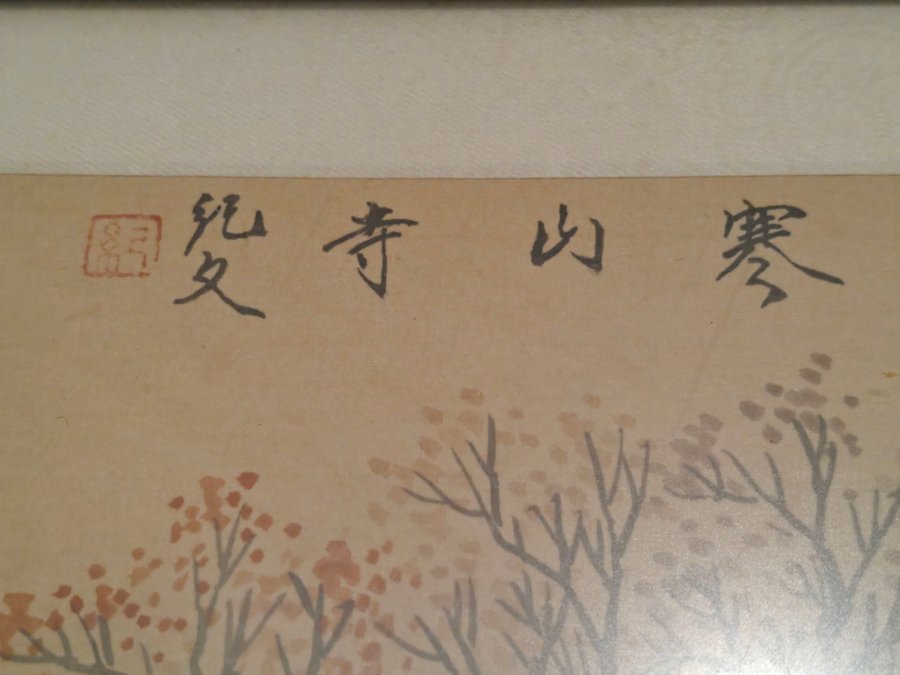 寒山寺
纪文
紀